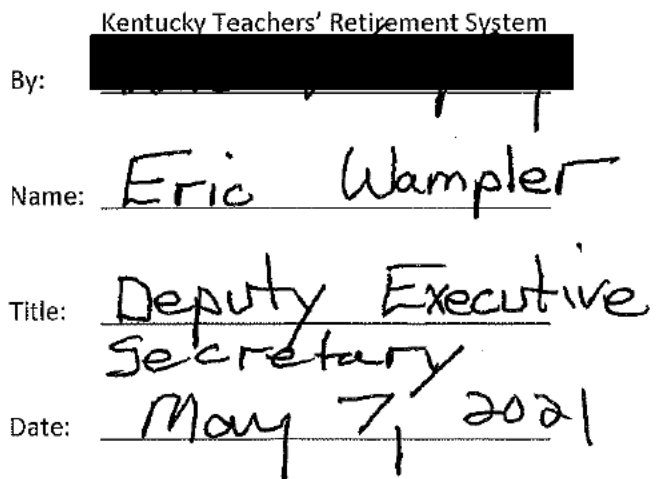 Kentucky Teachers' Retirement System
By:
Name: Eric Wampler
Title: Deputy Executive
Secretary
Date: May 7, 2021